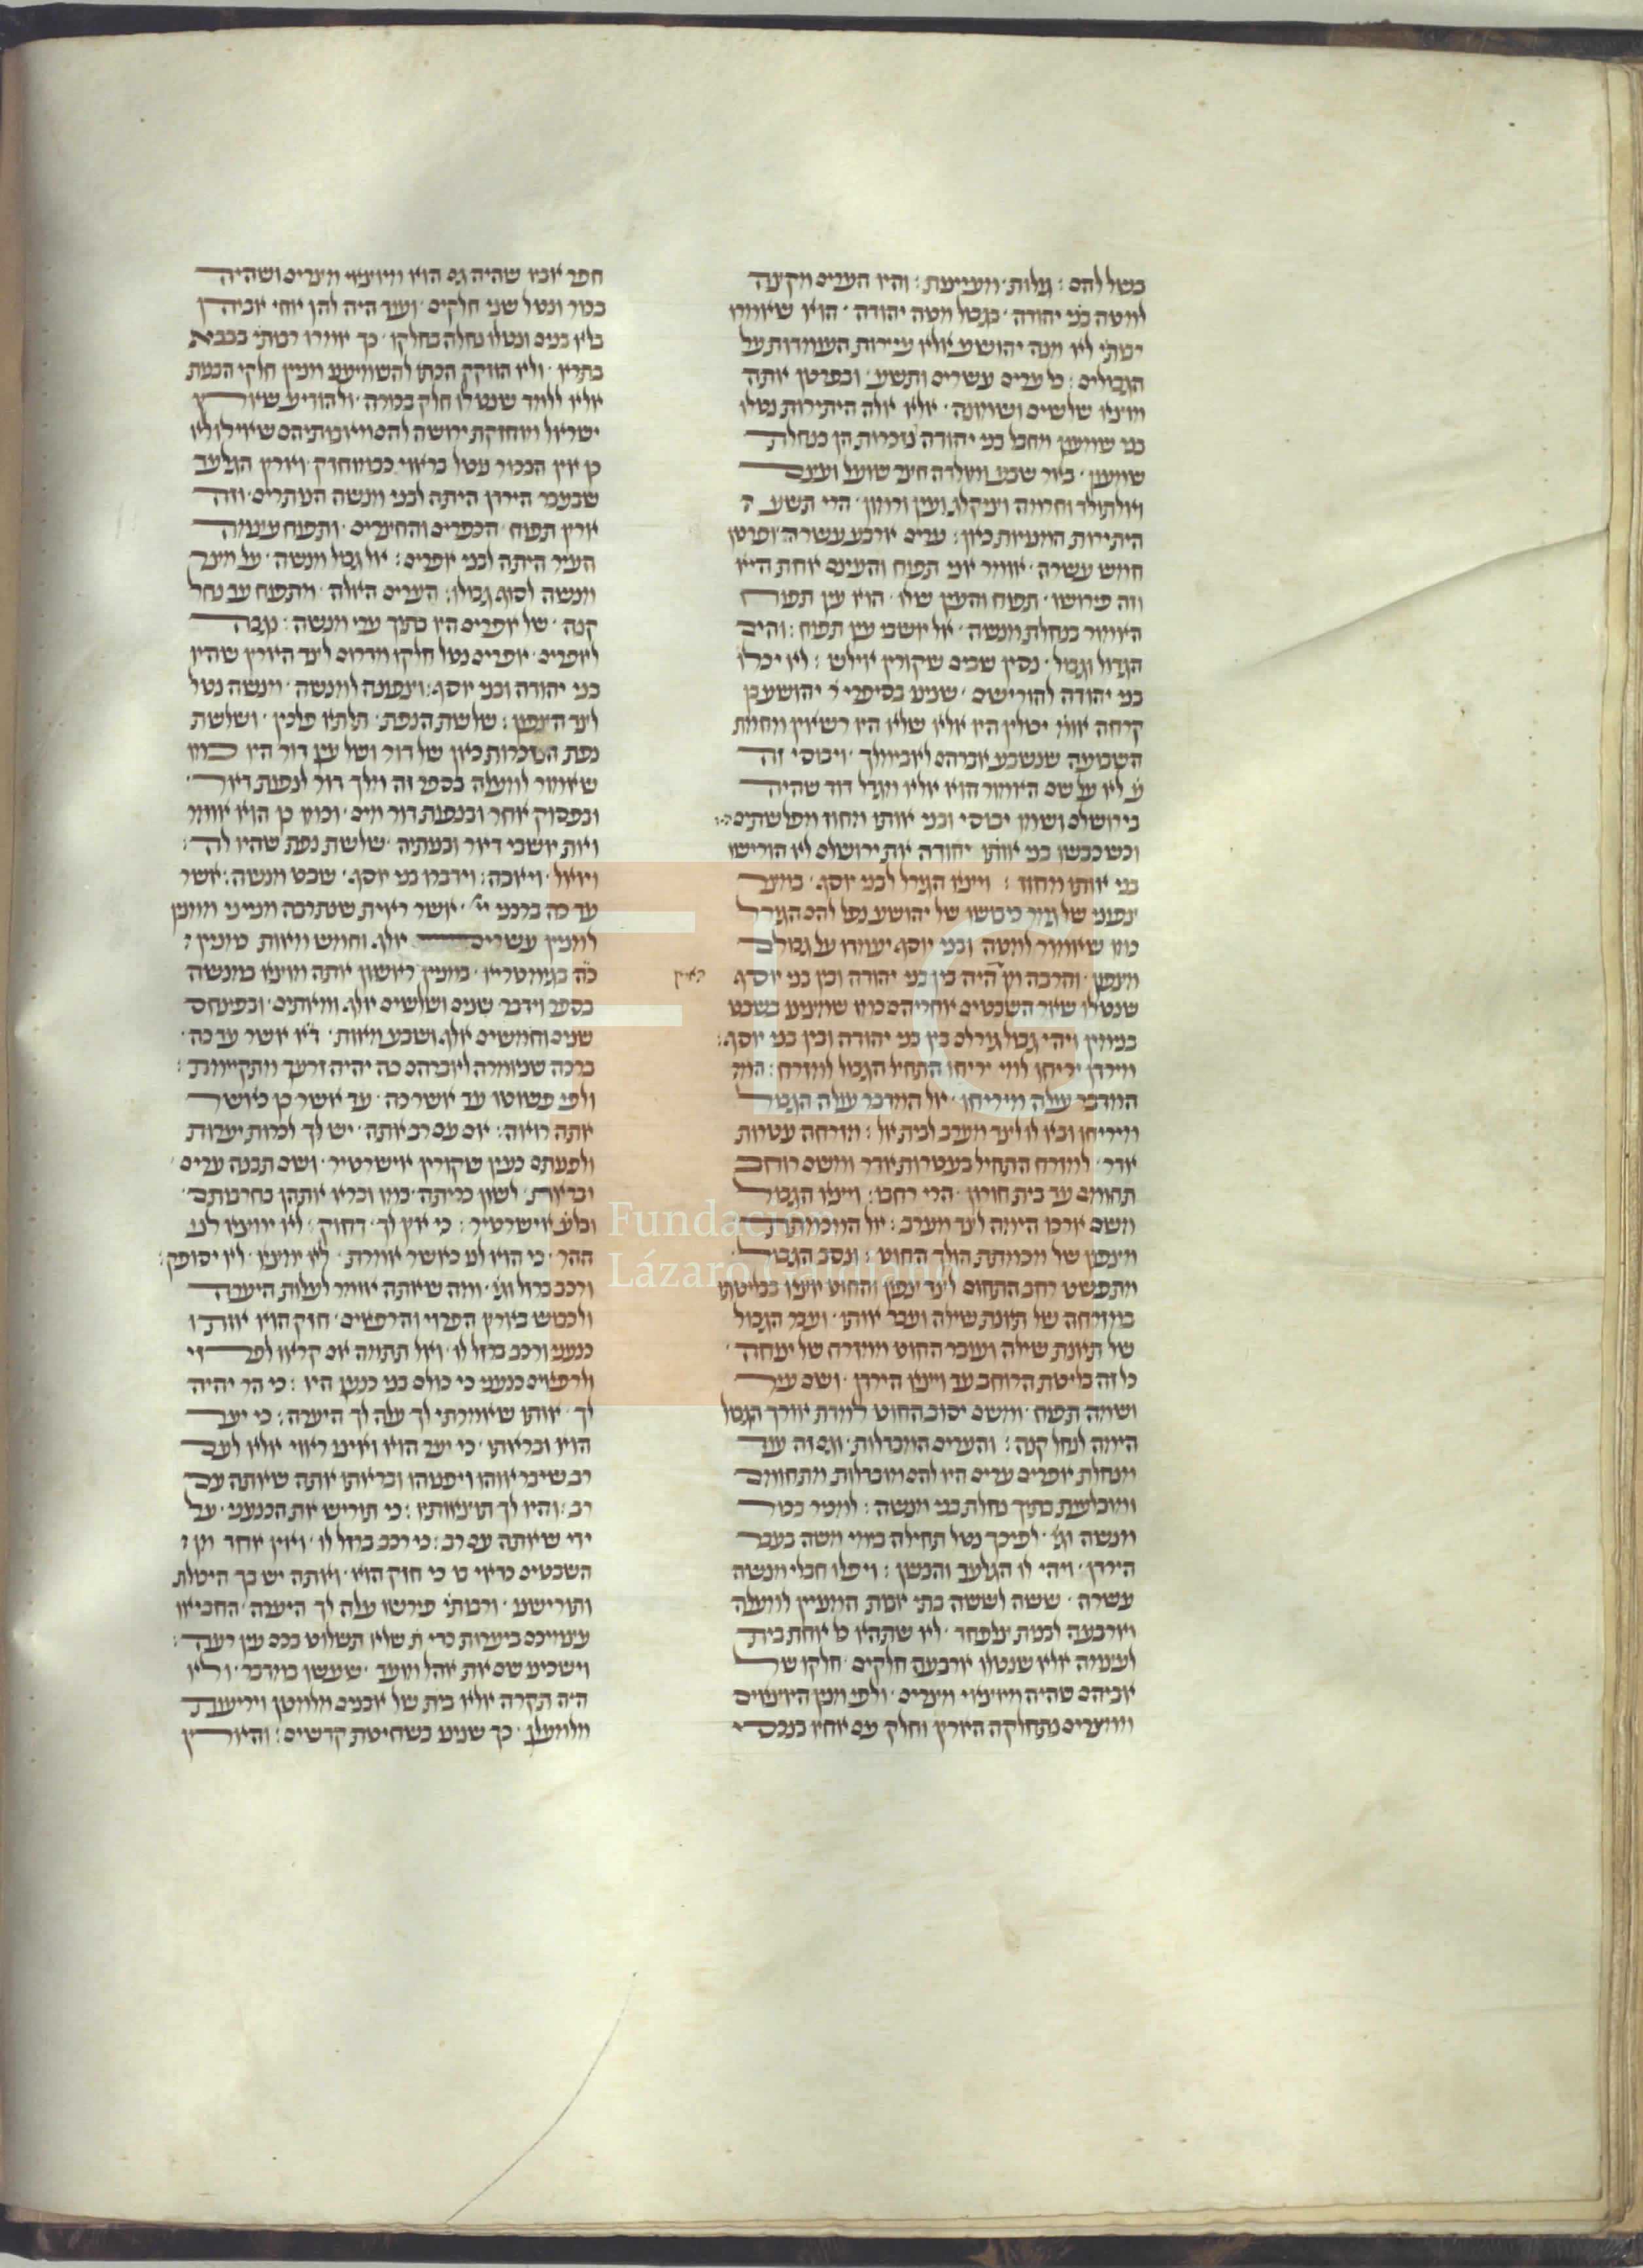 בשל להם : גלות · מעיינות : והיו הערים מקצה
למטה בני יהודה · בגבול מטה יהודה · הוא שאמרו
רבותי לא מנה יהושע אלא עיירות העומדות על
הגבולים : כל ערים עשרים ותשע · ובפרטן אתה
מוצא שלשים ושמונה · אלא אלה היתירות נטלו
בני שמעון מחבל בני יהודה נזכרות הן בנחלת
שמעון · באר שבע ומולדה חצר שועל ועצם
ואלתולד וחרמה וצקלג ועין ורמון · הרי תשע
היתירות המנויות כאן : ערים ארבע עשרה ופרטן
חמש עשרה · אומר אני תפוח והעינם אחת היא
וזה פירושו · תפוח והעין שלו · הוא עין תפוח
האמור בנחלת מנשה · אל יושבי עין תפוח : והים
הגדול וגבול · נסין שבים שקורין אילש : לא יכלו
בני יהודה להורישם · שנוי בסיפרי ר יהושע בן
קרחה אומ יכולין היו אלא שלא היו רשאין מחמת
השבועה שנשבע אברהם לאבימלך · ויבוסי זה
ע לא על שם האמור הוא אלא מגדל דוד שהיה
בירושלם ושמו יבוסי ובני אותו מחוז מפלשתים
וכשכבשו בני אותו יהודה את ירושלם לא הורישו
בני אותו מחוז : ויצא הגורל לבני יוסף · במצר
צפוני של גורל של יהושע נפל להם הגורל
כמו שאמור למטה ובני יוסף יעמדו על גבולם
מצפון · והרבה מן היה בין בני יהודה ובין בני יוסף
שנטלו שאר השבטים אחריהם כמו שמצינו בשבט
בנימין ויהי גבול גורלם בין בני יהודה ובין בני יוסף :
מירדן יריחו למי יריחו התחיל הגבול למזרח : הוא
המדבר עולה מיריחו · אל המדבר עולה הגבול
מיריחו ובא לו לצד מערב לבית אל : מזרחה עטרות
אדר · למזרח התחיל בעטרות אדר ומשם רוחב
תחומם עד בית חורון · הרי רחבו : ויצא הגבול
משם ארכו הימה לצד מערב : אל המכמתת
מצפון של מכמתת הולך החוט : ונסב הגבול ·
מתפשט רחב התחום לצד צפון והחוט יוצא בבליטתו
במזרחה של תאנת שילה ועבר אותו · ועבר הגבול
של תאנת שילה ועובר החוט ממזרח של ינוחה ·
כל זה בליטת הרוחב עד ויצא הירדן · ושם עיר
ושמה תפוח · ומשם יסוב החוט למדת אורך הגבול
הימה לנחל קנה : והערים המבדלות · וגם זה עוד
מנחלת אפרים ערים היו להם מובדלות מתחומם
ומובלעות בתוך נחלת בני מנשה : למכיר בכור
מנשה וג · לפיכך נטל תחילה בימי משה בעבר
הירדן · ויהי לו הגלעד והבשן : ויפלו חבלי מנשה
עשרה · ששה לששה בתי אבות המנויין למעלה
וארבעה לבנות צלפחד · לא שתהא כל אחת בית
לעצמה אלא שנטלו ארבעה חלקים · חלקו של
אביהם שהיה מיוצאי מצרים · ולפי מנין היוצאים
ממצרים נתחלקה הארץ וחלק עם אחיו בנכסי
לאין
חפר אביו שהיה גם הוא מיוצאי מצרים ושהיה
בכור ונטל שני חלקים · ועוד היה להן אחי אביהן
בלא בנים ונטלו נחלה בחלקו · כך אמרו רבותי בבבא
בתרא · ולא הוזקק הכתו להשמיענו מנין חלקי הבנות
אלא ללמד שנטלו חלק בכורה · ולהודיע שארץ
ישראל מוחזקת ירושה להם מאבותיהם שאילולא
כן אין הבכור נוטל בראוי כבמוחזק · וארץ הגלעד
שבעבר הירדן היתה לבני מנשה הנותרים · וזה
ארץ תפוח · הכפרים והחצרים · ותפוח עצמה
העיר היתה לבני אפרים : אל גבול מנשה · על מצר
מנשה לסוף גבולו : הערים האלה · מתפוח עד נחל
קנה · של אפרים היו בתוך ערי מנשה : נגבה
לאפרים · אפרים נטל חלקו מדרום לצד הארץ שהיו
בני יהודה ובני יוסף : וצפונה למנשה · מנשה נטל
לצד הצפון : שלושת הנפת · תלתא פלכין · ושלשת
נפת הנזכרות כאן של דור ושל עין דור היו כמו
שאמור למעלה בספר זה מלך דור לנפות דאור ·
ובפסוק אחר ובנפות דור מים · וכמו כן הוא אומר
ואת יושבי דאור ובנותיה · שלשת נפת שהיו לה :
ויואל · ויאבה : וידברו בני יוסף · שבט מנשה : אשר
עד כה ברכני יי · אשר ראית שנתרבה מניני ממנין
למנין עשרים אלף · וחמש מאות כמנין
כה בגימטריא · במנין ראשון אתה מוצא במנשה
בספר וידבר שנים ושלשים אלף · ומאתים · ובפינחס
שנים וחמשים אלף ושבע מאות · ד״א אשר עד כה ·
ברכה שנאמרה לאברהם כה יהיה זרעך מתקיימת :
ולפי פשוטו עד אשר כה · עד אשר כן כאשר
אתה רואה : אם עם רב אתה · יש לך לכרות יערות
ולפנותם כעין שקורין אישרטיר · ושם תבנה ערים ·
ובראת · לשון כריתה · כמו וברא אותהן בחרבותם ·
וכלע אישרטיר : כי אץ לך · דחוק : לא ימצא לנו
ההר · כי הוא לנו כאשר אמרת · לא ימצא · לא יסופק :
ורכב ברזל וג · ומה שאתה אומר לעלות היערה
ולכבוש בארץ הפרזי והרפאים · חזק הוא אותו
כנעני ורכב ברזל לו · ואל תתמה אם קראו לפרזי
ולרפאים כנעני כי כולם בני כנען היו : כי הר יהיה
לך · אותו שאמרתי לך עלה לך היערה : כי יער
הוא ובראתו · כי יער הוא ואינו ראוי אלא לעם
רב שיבראוהו ויפנוהו ובראתו אתה שאתה עם
רב : והיו לך תוצאותיו : כי תוריש את הכנעני · על
ידי שאתה עם רב : כי רכב ברזל לו · ואין אחד מן
השבטים כדאי כ כי חזק הוא · ואתה יש בך היכולת
ותורישנו · ורבותי פירשו עלה לך היערה · החביאו
עצמיכם ביערות כדי ת שלא תשלוט בכם עין רעה :
וישכינו שם את אהל מועד · שעשו במדבר · ולא
היה תקרה אלא בית של אבנים מלמטן ויריעות
מלמעלן · כך שנינו בשחיטת קדשים : והארץ